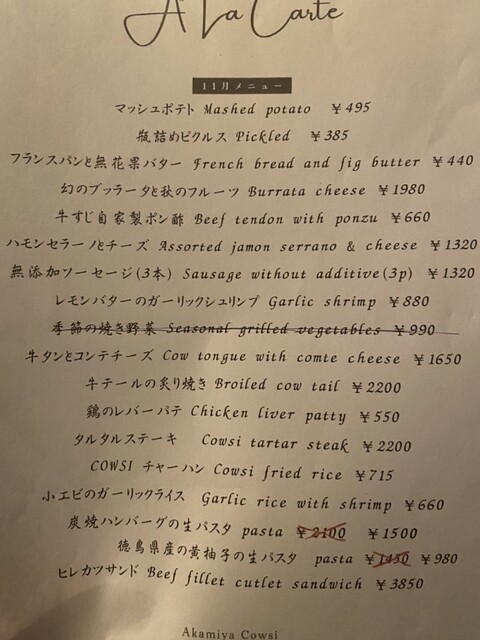 A La Carte
11月メニュー
マッシュポテト Mashed potato ¥495
瓶詰めピクルス Pickled ¥385
フランスパンと無花果バター French bread and fig butter ¥440
幻のブッラータと秋のフルーツ Burrata cheese ¥1980
牛すじ自家製ポン酢 Beef tendon with ponzu ¥660
ハモンセラーノとチーズ Assorted jamon serrano & cheese ¥1320
無添加ソーセージ(3本) Sausage without additive(3p) ¥1320
レモンバターのガーリックシュリンプ Garlic shrimp ¥880
季節の焼き野菜 Seasonal grilled vegetables ¥990
牛タンとコンテチーズ Cow tongue with comte cheese ¥1650
牛テールの炙り焼き Broiled cow tail ¥2200
鶏のレバーパテ Chicken liver patty ¥550
タルタルステーキ Cowsi tartar steak ¥2200
COWSI チャーハン Cowsi fried rice ¥715
小エビのガーリックライス Garlic rice with shrimp ¥660
炭焼ハンバーグの生パスタ pasta ¥2100 ¥1500
徳島県産の黄柚子の生パスタ pasta ¥1430 ¥980
ヒレカツサンド Beef fillet cutlet sandwich ¥3850
Akamiya Cowsi